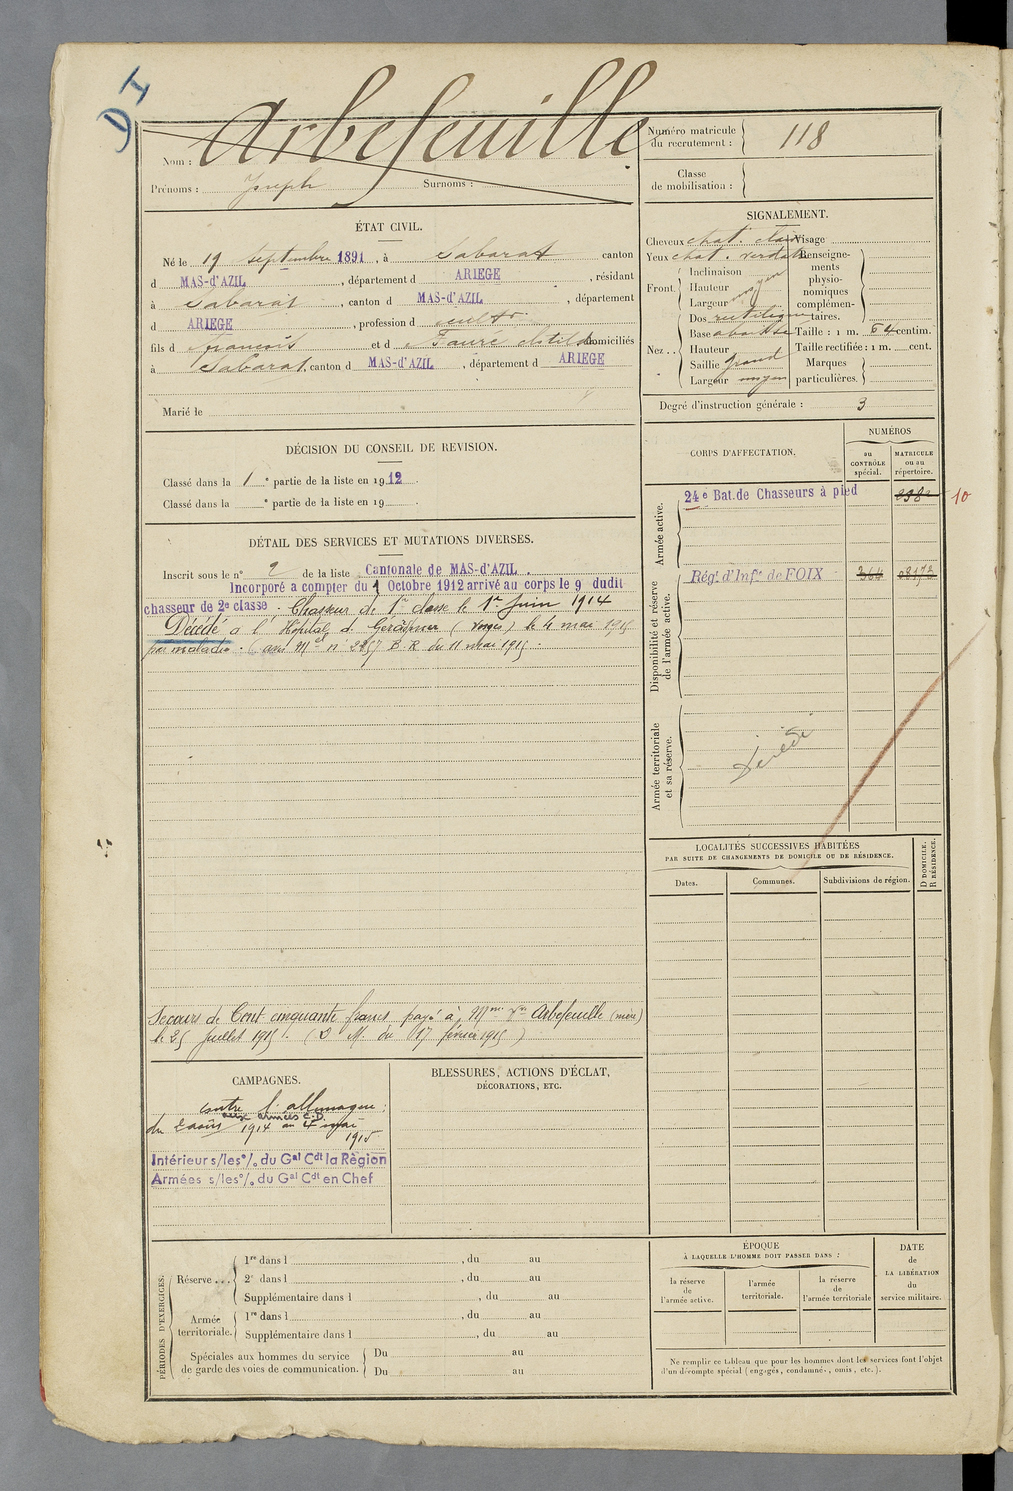 DI
Nom : Arbefeuille
Prénoms : Joseph Surnoms :
Numéro matricule du recrutement : 118
Classe de mobilisation :
ÉTAT CIVIL.
Né le 19 septembre 1891, à Sabarat canton
d MAS-d'AZIL, département d ARIEGE, résidant
à Sabarat, canton d MAS-d'AZIL, département
d ARIEGE, profession d cultr
fils d François et d Fauré Clotilde domiciliés
à Sabarat, canton d MAS-d'AZIL, département d ARIEGE
Marié le
SIGNALEMENT.
Cheveux chat. clair Visage
Yeux chat. verdatre Renseignements physionomiques complémentaires.
Front. Inclinaison
Hauteur moyen
Largeur
Nez .. Dos rectiligne
Base abaissée Taille : 1 m. 64 centim.
Hauteur Taille rectifiée : 1 m. cent.
Saillie grand Marques particulières.
Largeur moyen
Degré d'instruction générale : 3
DÉCISION DU CONSEIL DE REVISION.
Classé dans la 1e partie de la liste en 1912.
Classé dans la e partie de la liste en 19 .
CORPS D'AFFECTATION.
NUMÉROS
au CONTRÔLE spécial.
MATRICULE ou au répertoire.
Armée active.
24e Bat. de Chasseurs à pied 10
Disponibilité et réserve de l'armée active.
Régt d'Infie de FOIX 364
Armée territoriale et sa réserve.
Décédé
DÉTAIL DES SERVICES ET MUTATIONS DIVERSES.
Inscrit sous le n° 2 de la liste Cantonale de MAS-d'AZIL.
Incorporé a compter du 1 Octobre 1912 arrivé au corps le 9 dudit
chasseur de 2e classe. Chasseur de 1e classe le 1er Juin 1914
Décédé à l'Hôpital de Gérardmer (Vosges) le 4 mai 1915
par maladie. (avis Mel n° 2257 B.R. du 11 mai 1915.
Secours de Cent cinquante francs payé à Mme Arbefeuille (mère)
le 25 juillet 1915. (D. M. du 17 février 1915)
LOCALITÉS SUCCESSIVES HABITÉES
PAR SUITE DE CHANGEMENTS DE DOMICILE OU DE RÉSIDENCE.
Dates.
Communes.
Subdivisions de région.
D DOMICILE.
R RÉSIDENCE.
CAMPAGNES.
contre l'allemagne :
aux armées C.D.
du 2 août 1914 au 4 mai
1915
Intérieur s/les °/. du Gal Cdt la Région
Armées s/les °/. du Gal Cdt en Chef
BLESSURES, ACTIONS D'ÉCLAT,
DÉCORATIONS, ETC.
PÉRIODES D'EXERCICES.
Réserve ...
1re dans l , du au
2e dans l , du au
Supplémentaire dans l , du au
Armée territoriale.
1re dans l , du au
Supplémentaire dans l , du au
Spéciales aux hommes du service
de garde des voies de communication.
Du au
Du au
ÉPOQUE
À LAQUELLE L'HOMME DOIT PASSER DANS :
la réserve de l'armée active.
l'armée territoriale.
la réserve de l'armée territoriale
DATE de LA LIBÉRATION du service militaire.
Ne remplir ce tableau que pour les hommes dont les services font l'objet
d'un décompte spécial (engagés, condamnés, omis, etc.).